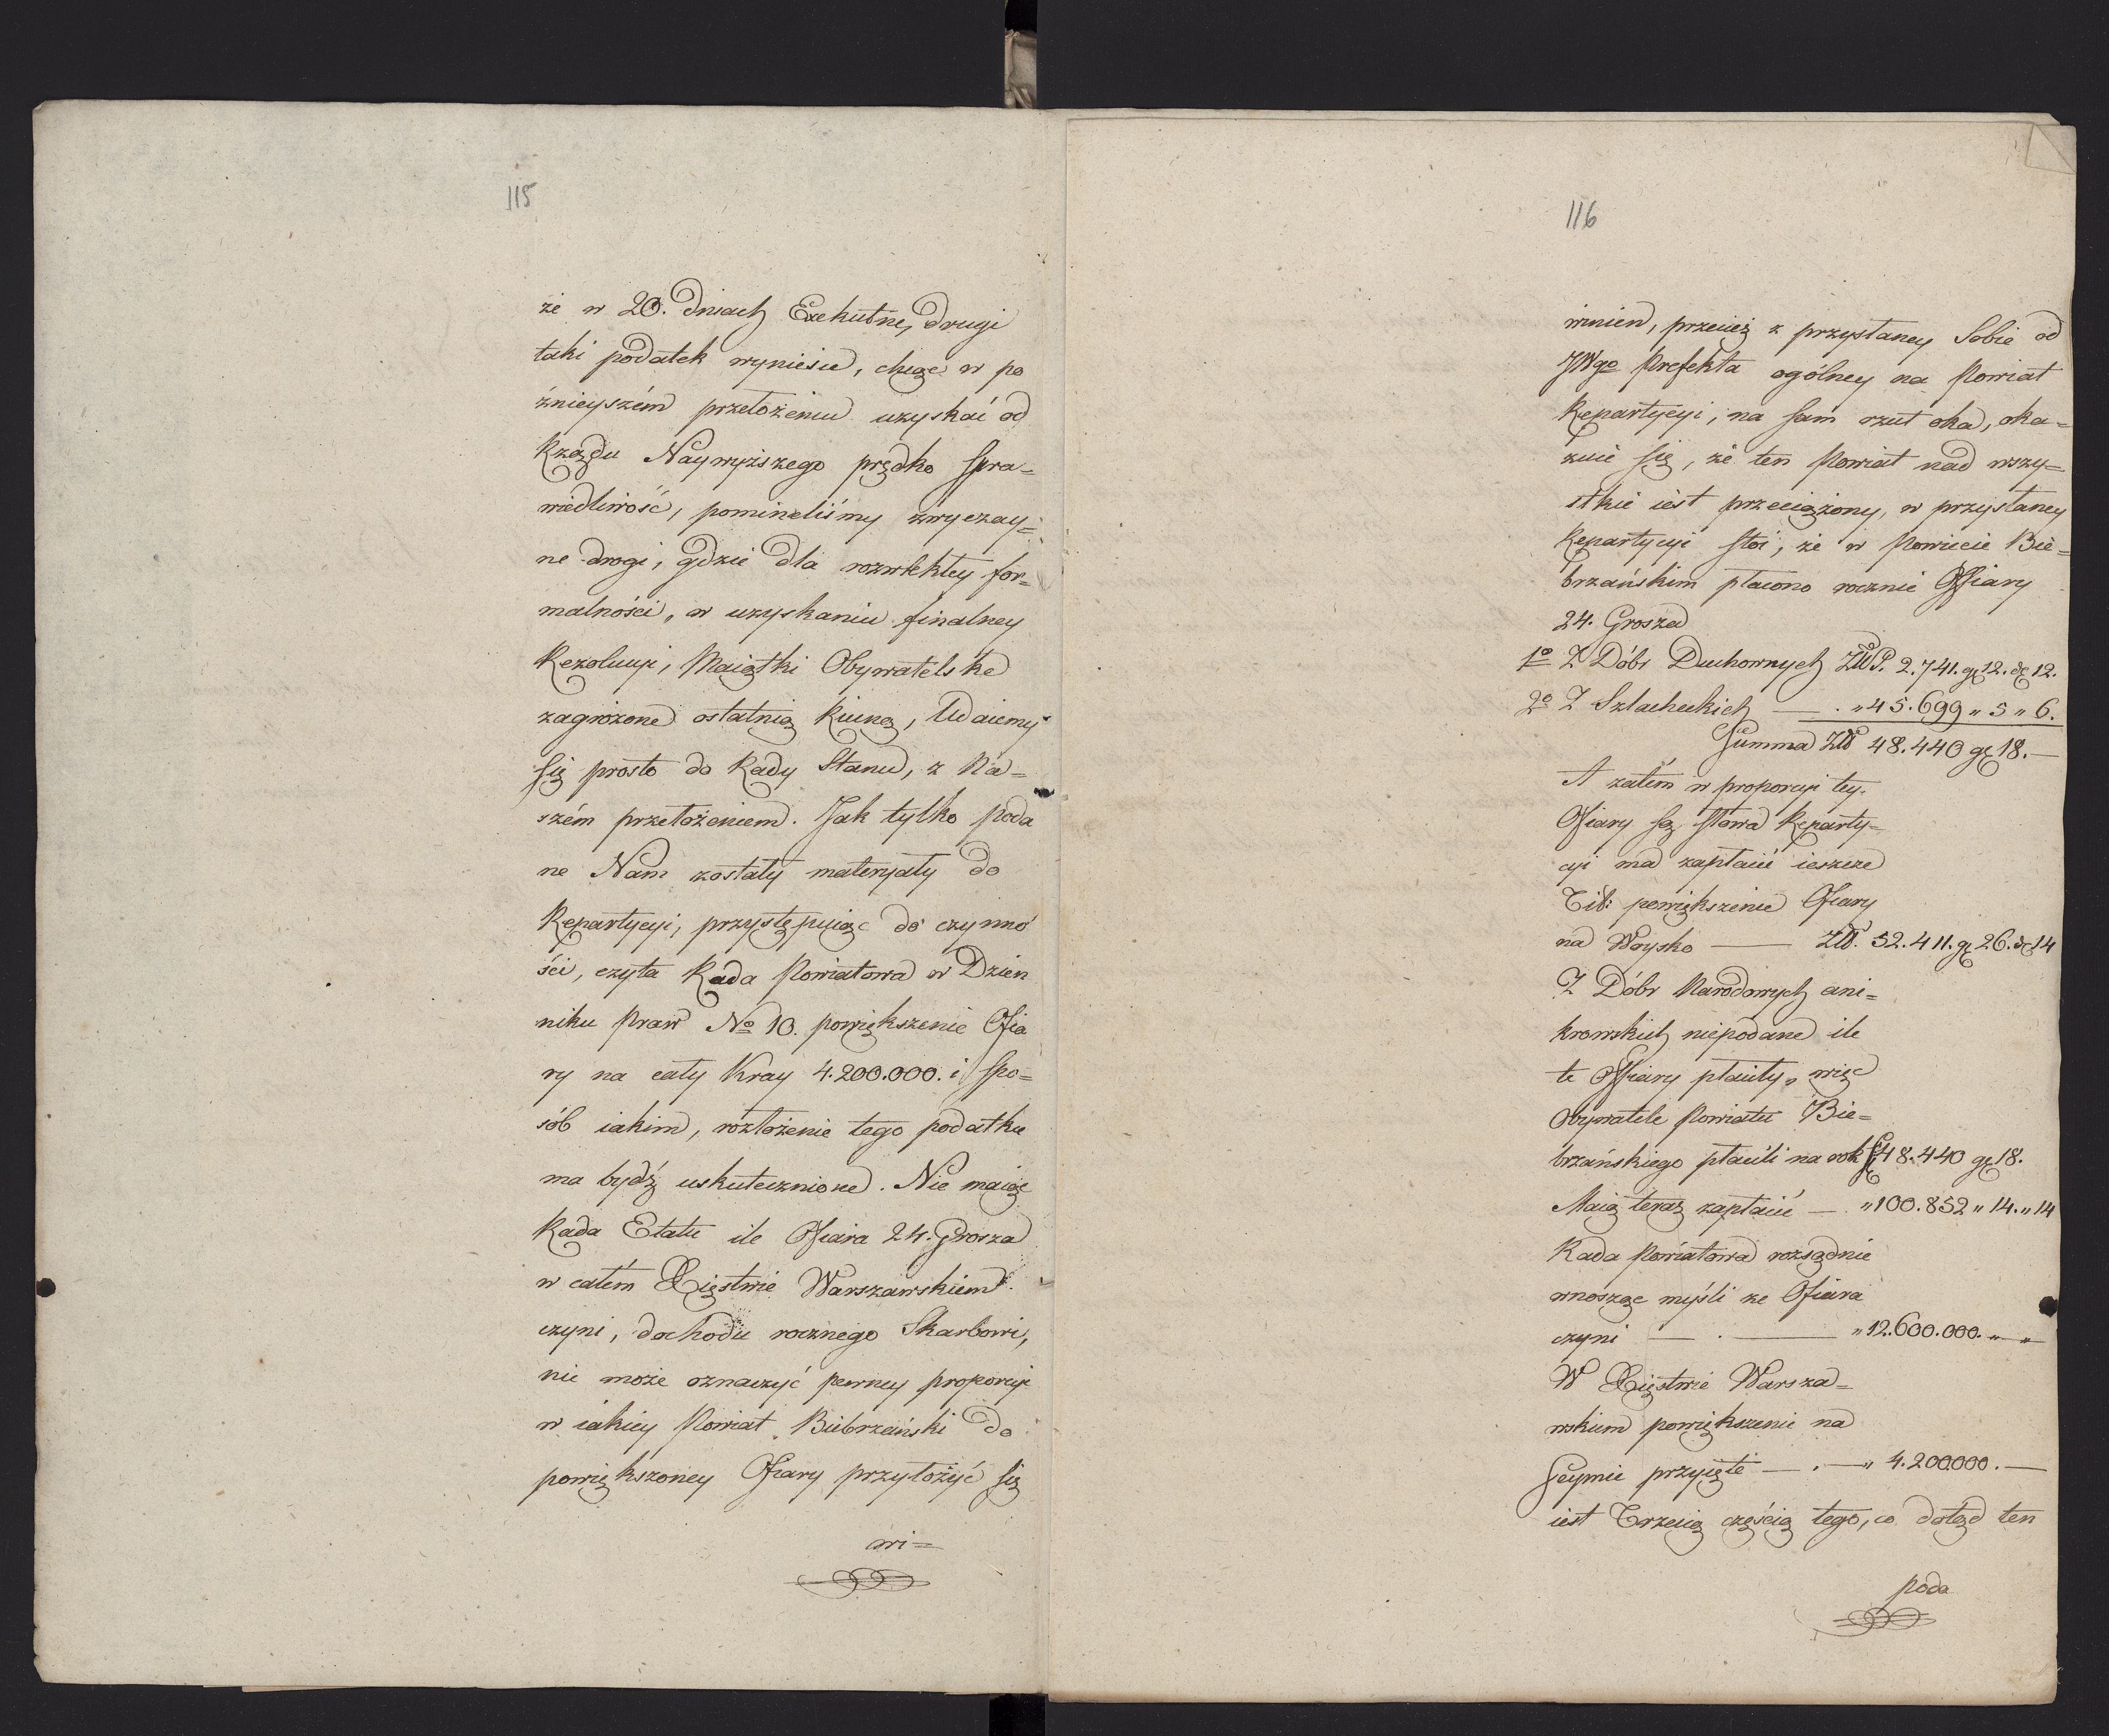 115
że w 20. Dniach Exekutne, drugi
taki podatek wyniesie, chcąc w po
źnieyszém przełożeniu uzyskać od
Rządu Naywyższego prędko Spra=
wiedliwość, pomineliśmy zwyczay=
ne drogi, gdzie dla rozwlekłey for=
malności, w uzyskaniu finalney
Rezolucyi, Maiątki Obywatelskie
zagrożone ostatnią Ruiną, Udaiemy
się prosto do Rady Stanu, z Na=
szém przełożeniem. Jak tylko poda
ne Nam zostały materyały do
Repartycyi, przystępuiąc do czynno
ści, czyta Rada Powiatowa w Dzien
niku Praw No 10. powiększenie Ofia
ry na cały Kray 4.200.000. i Spo=
sób iakim, rozłożenie tego podatku
ma bydź uskutecznione. Nie maiąc
Rada Etatu ile Ofiara 24. Grosza
w całém Xięstwie Warszawskiem
czyni, dochodu rocznego Skarbowi,
nie może oznaczyć pewney proporcyi
w iakiey Powiat Biebrzański do
powiększoney Ofiary przyłożyć się
wi=
116
winien, przecież z przysłaney Sobie od
JWgo Prefekta ogólney na Powiat
Repartycyi, na sam rzut oka, oka=
zuie się, że ten Powiat nad wszy=
stkie iest przeciążony, w przysłaney
Repartycyi stoi, że w Powiecie Bie=
brzańskim płacono rocznie Offiary
24. Grosza
1o Z Dóbr Duchownych Złł P. 2.741. gr 12. d 12.
2o Z Szlacheckich — . „ 45.699 „ 5 „ 6.
Summa Złł 48.440 gr 18. —
A zatém w proporcyi tey
Ofiary są słowa Reparty=
cyi ma zapłacić ieszcze
Tit: powiększenie Ofiary
na Woysko — Złł. 52.411. gr 26. d 14
Z Dóbr Narodowych ani=
krowskich niepodane ile
te Offiary płaciły, więc
Obywatele Powiatu Bie=
brzańskiego płacili na rok 48.440 gr 18.
Maią teraz zapłacić — „ 100.852 „ 14. „ 14
Rada Powiatowa rozsądnie
wnosząc myśli że Ofiara
czyni — . — „ 12.600.000. „ „
W Xięstwie Warsza=
wskiem powiększenie na
Seymie przyięte — . — „ 4.200.000. —
iest Trzecią częścią tego, co dotąd ten
poda